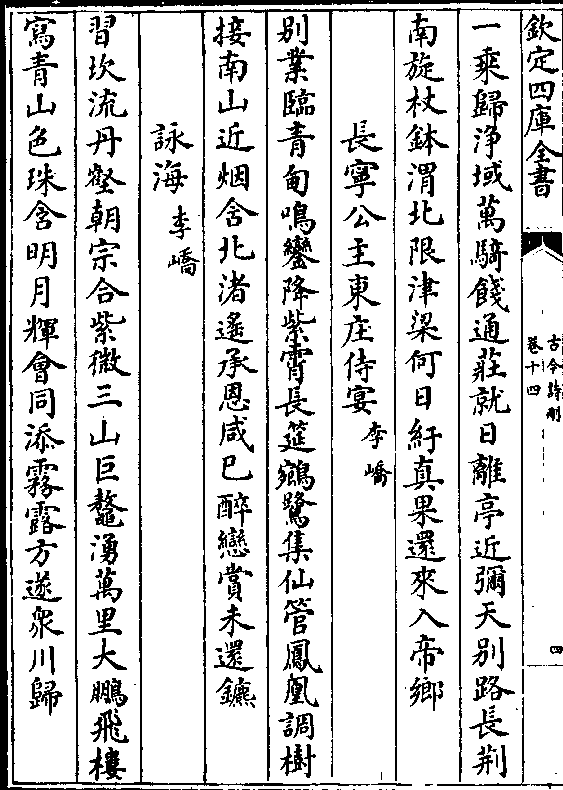 欽定四庫全書
古今詩刪
卷十四
四
一乘歸浄域萬騎餞通莊就日離亭近彌天别路長荆
南旋杖鉢渭北限津梁何日紆真果還來入帝鄉
長寧公主東庄侍宴 李嶠
别業臨青甸鳴鑾降紫霄長筵鵷鷺集仙管鳳凰調樹
接南山近烟含北渚遙承恩咸已醉戀賞未還鑣
詠海 李嶠
習坎流丹壑朝宗合紫微三山巨鼇湧萬里大鵬飛樓
寫青山色珠含明月輝會同添霧露方逐衆川歸